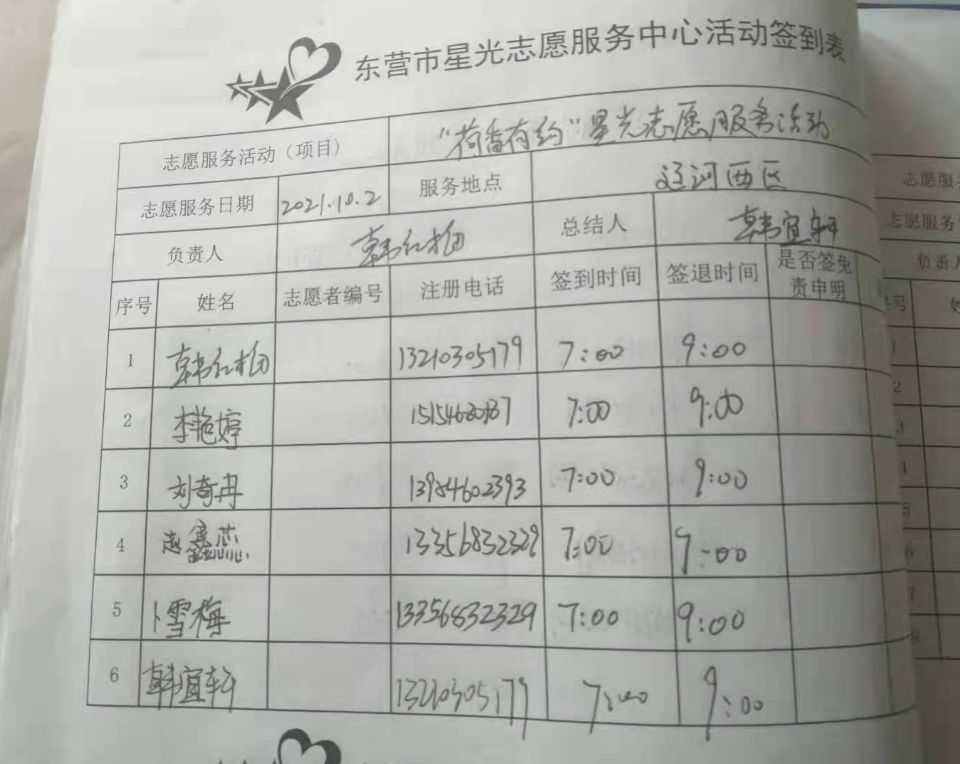 东营市星光志愿服务中心活动签到表
志愿服务活动（项目） “荷香有约”星光志愿服务活动
志愿服务日期 2021.10.2 服务地点 辽河西区
负责人 韩红梅 总结人 韩宜轩
序号 姓名 志愿者编号 注册电话 签到时间 签退时间 是否签免责申明
1 韩红梅 13210305179 7:00 9:00
2 李艳婷 7:00 9:00
3 刘奇冉 13954602393 7:00 9:00
4 赵鑫蕊 13356832329 7:00 9:00
5 卜雪梅 13356832329 7:00 9:00
6 韩宜轩 13210305179 7:00 9:00
志愿服
志愿服务
负责人